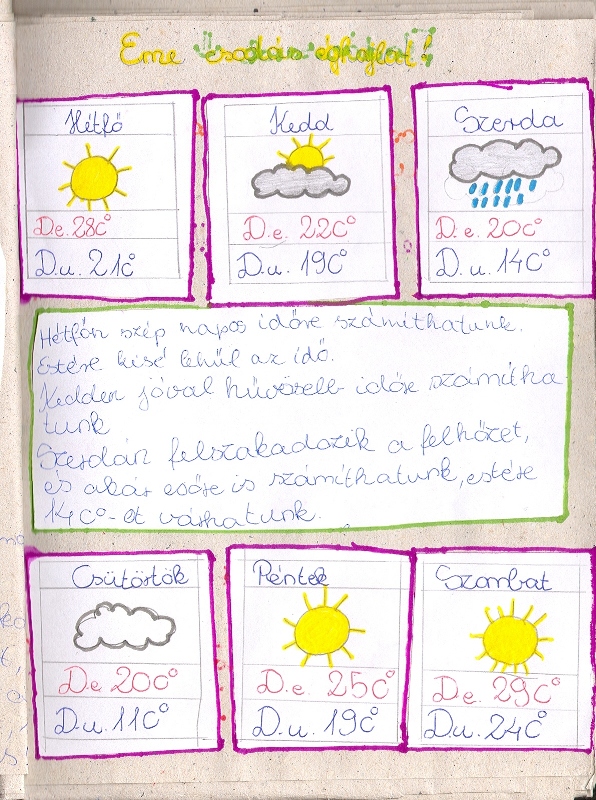 Eme csodás éghajlat!
Hétfő
De. 28C°
D.u. 21C°
Kedd
D.e. 22C°
D.u. 19C°
Szerda
D.e. 20C°
D.u. 14C°
Hétfőn szép napos időre számíthatunk.
Estére kisé lehül az idő.
Kedden jóval hüvösebb időre számítha-
tunk
Szerdán felszakadozik a felhőzet,
és akár esőre is számíthatunk, estére
14C°-ot várhatunk.
Csütörtök
De 20C°
D.u. 11C°
Péntek
D.e. 25C°
D.u. 19C°
Szombat
D.e. 29C°
D.u. 24C°